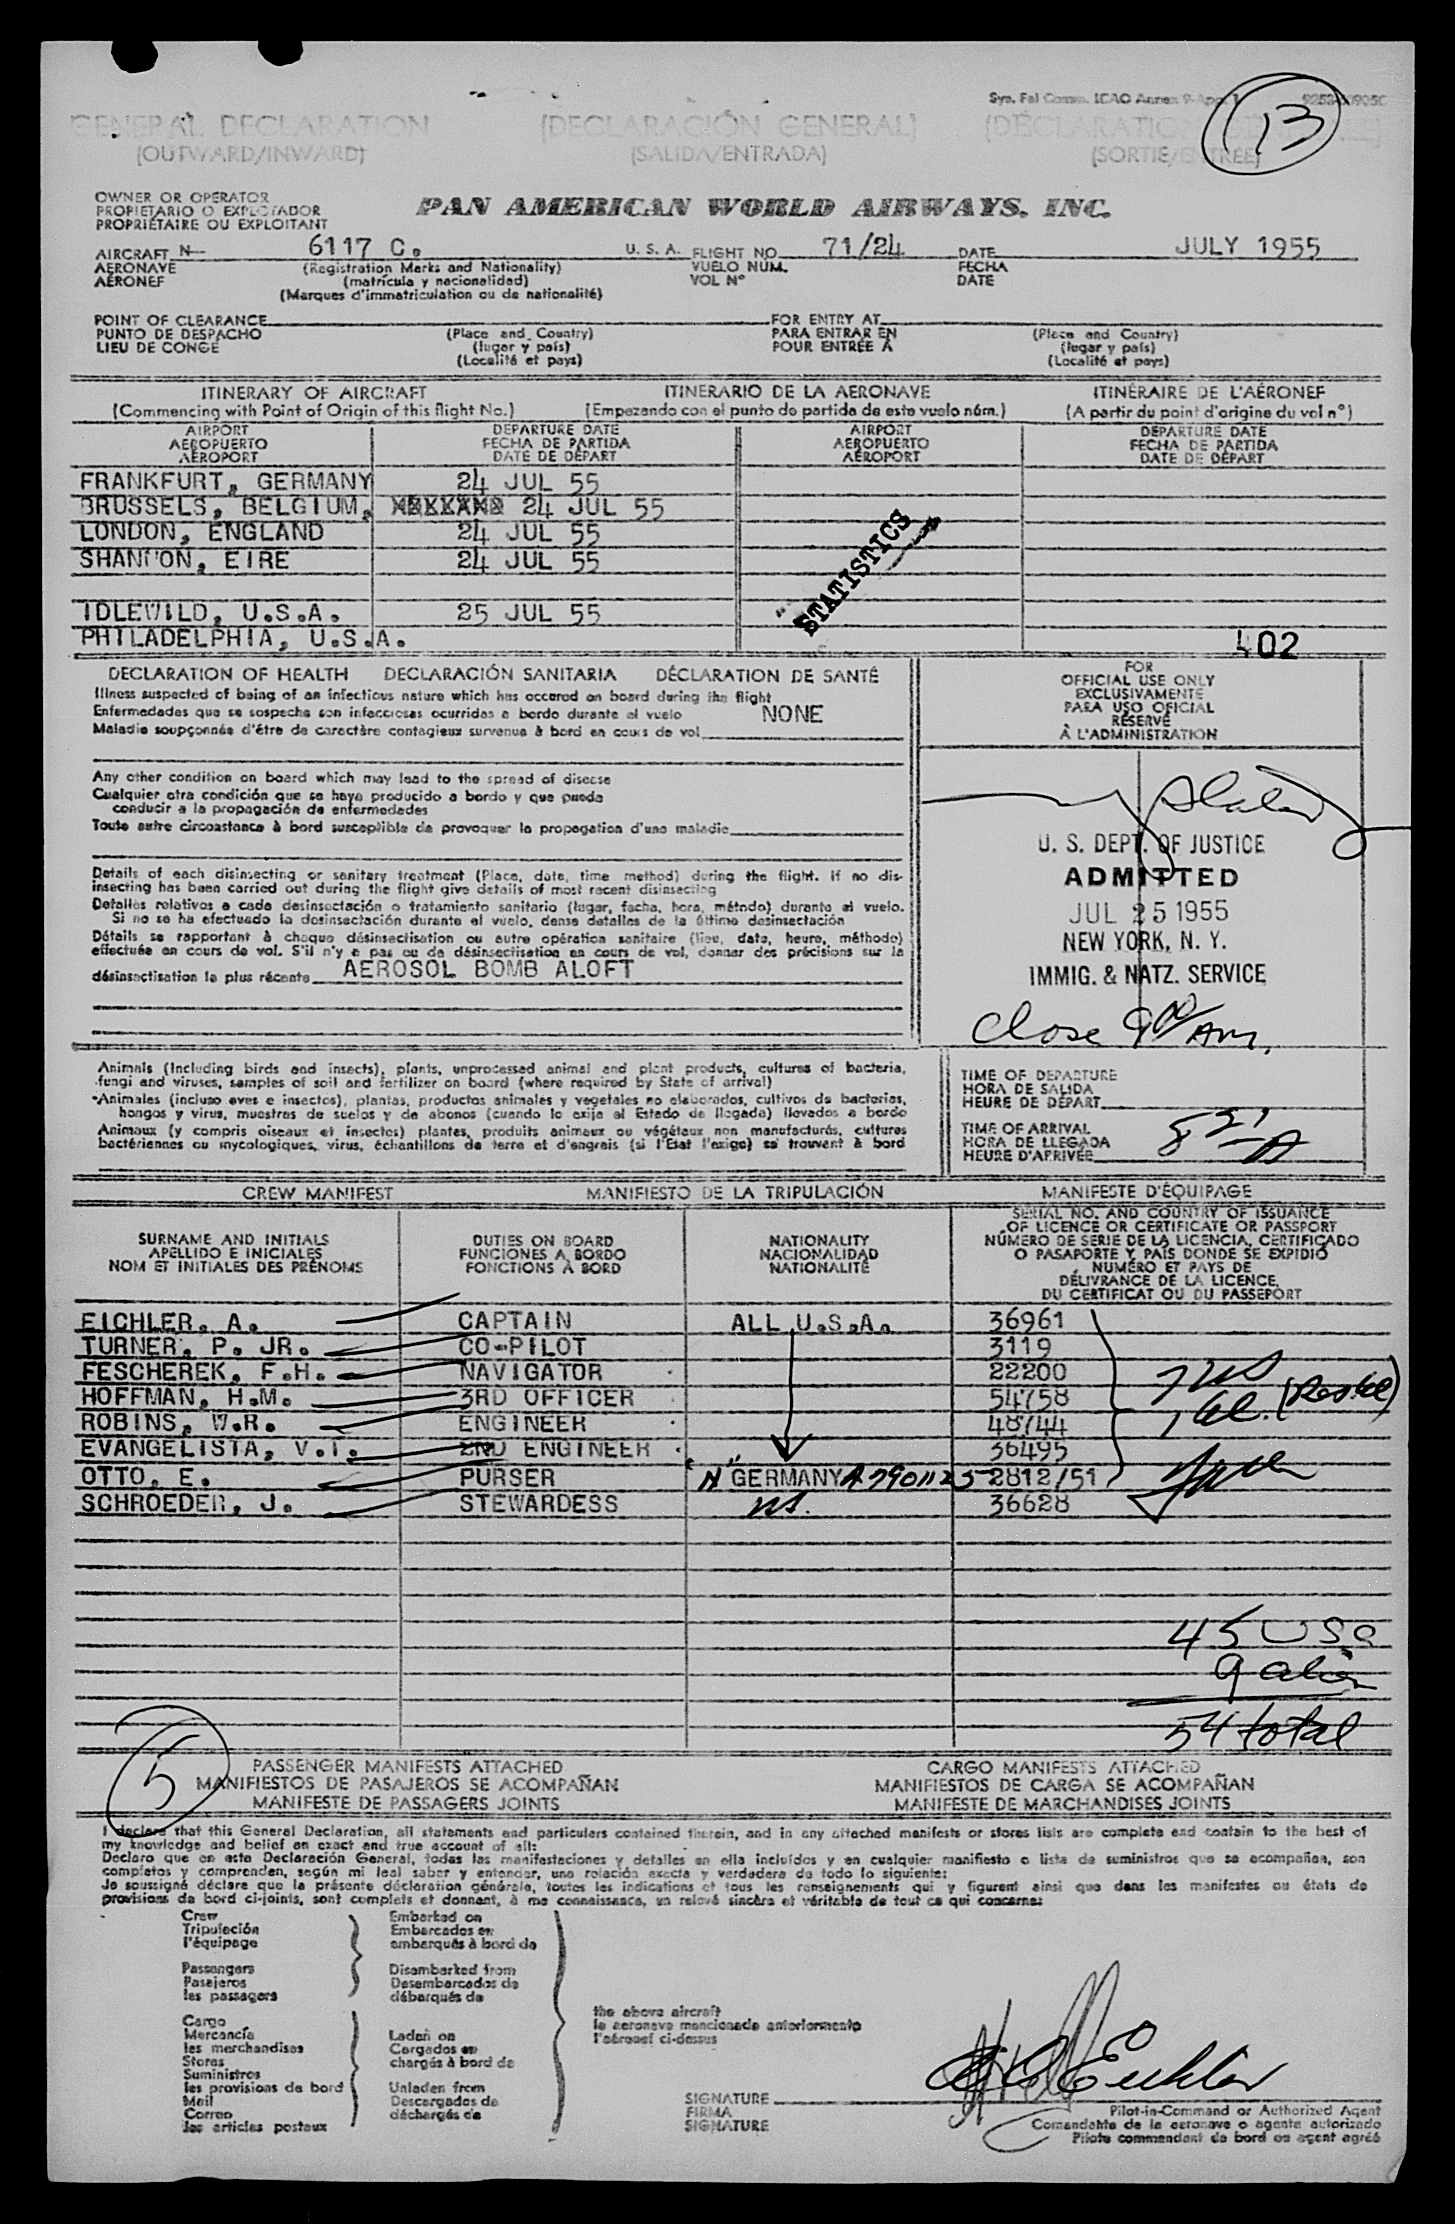 Syn. Fal Comm. ICAO Annex 9-App. 1
13
GENERAL DECLARATION [DECLARACIÓN GENERAL]
(OUTWARD/INWARD) (SALIDA/ENTRADA) (SORTIE/ENTRÉE)
OWNER OR OPERATOR
PROPIETARIO O EXPLOTADOR
PROPRIÉTAIRE OU EXPLOITANT
PAN AMERICAN WORLD AIRWAYS, INC.
AIRCRAFT N- 6117 C. U. S. A. FLIGHT NO. 71/24 DATE JULY 1955
AERONAVE (Registration Marks and Nationality) VUELO NUM. FECHA
AÉRONEF (matrícula y nacionalidad) VOL N° DATE
(Marques d'immatriculation ou de nationalité)
POINT OF CLEARANCE FOR ENTRY AT
PUNTO DE DESPACHO (Place and Country) PARA ENTRAR EN (Place and Country)
LIEU DE CONGÉ (lugar y país) POUR ENTRÉE A (lugar y país)
(Localité et pays) (Localité et pays)
ITINERARY OF AIRCRAFT ITINERARIO DE LA AERONAVE ITINÉRAIRE DE L'AÉRONEF
(Commencing with Point of Origin of this flight No.) (Empezando con el punto de partida de este vuelo núm.) (A partir du point d'origine du vol n°)
AIRPORT DEPARTURE DATE AIRPORT DEPARTURE DATE
AEROPUERTO FECHA DE PARTIDA AEROPUERTO FECHA DE PARTIDA
AÉROPORT DATE DE DÉPART AÉROPORT DATE DE DÉPART
FRANKFURT, GERMANY 24 JUL 55
BRUSSELS, BELGIUM, 24 JUL 55
LONDON, ENGLAND 24 JUL 55
SHANNON, EIRE 24 JUL 55
STATISTICS
IDLEWILD, U.S.A. 25 JUL 55
PHILADELPHIA, U.S.A.
402
DECLARATION OF HEALTH DECLARACIÓN SANITARIA DÉCLARATION DE SANTÉ
Illness suspected of being of an infectious nature which has occured on board during the flight
Enfermedades que se sospecha son infecciosas ocurridas a bordo durante el vuelo NONE
Maladie soupçonnée d'être de caractère contagieux survenue à bord en cours de vol
Any other condition on board which may lead to the spread of disease
Cualquier otra condición que se haya producido a bordo y que pueda
conducir a la propagación de enfermedades
Toute autre circonstance à bord susceptible de provoquer la propagation d'une maladie
Details of each disinsecting or sanitary treatment (Place, date, time method) during the flight. If no dis-
insecting has been carried out during the flight give details of most recent disinsecting
Detalles relativos a cada desinsectación o tratamiento sanitario (lugar, fecha, hora, método) durante el vuelo.
Si no se ha efectuado la desinsectación durante el vuelo, dense detalles de la última desinsectación
Détails se rapportant à chaque désinsectisation ou autre opération sanitaire (lieu, date, heure, méthode)
effectuée en cours de vol. S'il n'y a pas eu de désinsectisation en cours de vol, donner des précisions sur la
désinsectisation la plus récente AEROSOL BOMB ALOFT
FOR
OFFICIAL USE ONLY
EXCLUSIVAMENTE
PARA USO OFICIAL
RÉSERVÉ
À L'ADMINISTRATION
U. S. DEPT. OF JUSTICE
ADMITTED
JUL 25 1955
NEW YORK, N. Y.
IMMIG. & NATZ. SERVICE
Close 9 00 AM.
Animals (Including birds and insects), plants, unprocessed animal and plant products, cultures of bacteria,
fungi and viruses, samples of soil and fertilizer on board (where required by State of arrival)
Animales (incluso aves e insectos), plantas, productos animales y vegetales no elaborados, cultivos de bacterias,
hongos y virus, muestras de suelos y de abonos (cuando lo exija el Estado de llegada) llevados a bordo
Animaux (y compris oiseaux et insectes) plantes, produits animaux ou végétaux non manufacturés, cultures
bactériennes ou mycologiques, virus, échantillons de terre et d'engrais (si l'Etat l'exige) se trouvant à bord
TIME OF DEPARTURE
HORA DE SALIDA
HEURE DE DÉPART
TIME OF ARRIVAL
HORA DE LLEGADA
HEURE D'ARRIVÉE 8 21 A
CREW MANIFEST MANIFIESTO DE LA TRIPULACIÓN MANIFESTE D'ÉQUIPAGE
SURNAME AND INITIALS
APELLIDO E INICIALES
NOM ET INITIALES DES PRÉNOMS
DUTIES ON BOARD
FUNCIONES A BORDO
FONCTIONS À BORD
NATIONALITY
NACIONALIDAD
NATIONALITÉ
SERIAL NO. AND COUNTRY OF ISSUANCE
OF LICENCE OR CERTIFICATE OR PASSPORT
NÚMERO DE SERIE DE LA LICENCIA, CERTIFICADO
O PASAPORTE Y PAÍS DONDE SE EXPIDIÓ
NUMÉRO ET PAYS DE
DÉLIVRANCE DE LA LICENCE,
DU CERTIFICAT OU DU PASSEPORT
EICHLER, A. CAPTAIN ALL U.S.A. 36961
TURNER, P. JR. CO-PILOT 3119
FESCHEREK, F.H. NAVIGATOR 22200
HOFFMAN, H.M. 3RD OFFICER 54758
ROBINS, W.R. ENGINEER 48744
EVANGELISTA, V.I. 2ND ENGINEER 36495
OTTO, E. PURSER "N" GERMANY A7901125 2812/51
SCHROEDER, J. STEWARDESS US. 36628
45 USA
9 alien
54 total
5
PASSENGER MANIFESTS ATTACHED CARGO MANIFESTS ATTACHED
MANIFIESTOS DE PASAJEROS SE ACOMPAÑAN MANIFIESTOS DE CARGA SE ACOMPAÑAN
MANIFESTE DE PASSAGERS JOINTS MANIFESTE DE MARCHANDISES JOINTS
I declare that this General Declaration, all statements and particulars contained therein, and in any attached manifests or stores lists are complete and contain to the best of
my knowledge and belief an exact and true account of all:
Declaro que en esta Declaración General, todas las manifestaciones y detalles en ella incluídos y en cualquier manifiesto o lista de suministros que se acompañan, son
completos y comprenden, según mi leal saber y entender, una relación exacta y verdadera de todo lo siguiente:
Je soussigné déclare que la présente déclaration générale, toutes les indications et tous les renseignements qui y figurent ainsi que dans les manifestes ou états de
provisions de bord ci-joints, sont complets et donnent, à ma connaissance, un relevé sincère et véritable de tout ce qui concerne:
Crew Embarked on
Tripulación Embarcados en
l'équipage embarqués à bord de
Passengers Disembarked from
Pasajeros Desembarcados de
les passagers débarqués de
Cargo
Mercancía Laden on
les merchandises Cargados en
Stores chargés à bord de
Suministros
les provisions de bord Unladen from
Mail Descargados de
Correo déchargés de
les articles postaux
the above aircraft
la aeronave mencionada anteriormente
l'aéronef ci-dessus
SIGNATURE
FIRMA
SIGNATURE
A Eichler
Pilot-in-Command or Authorized Agent
Comandante de la aeronave o agente autorizado
Pilote commandant de bord ou agent agréé